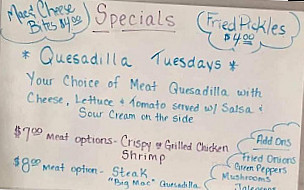 Mac & Cheese
Bites $4.00
Specials
Fried Pickles
$4.00
* Quesadilla Tuesdays *
Your Choice of Meat Quesadilla with
Cheese, Lettuce & Tomato served w/ Salsa &
Sour Cream on the side
$7.00 meat options - Crispy or Grilled Chicken
Shrimp
$8.00 meat option - Steak
"Big Mac" Quesadilla
Add Ons
Fried Onions
Green Peppers
Mushrooms
Jalapenos